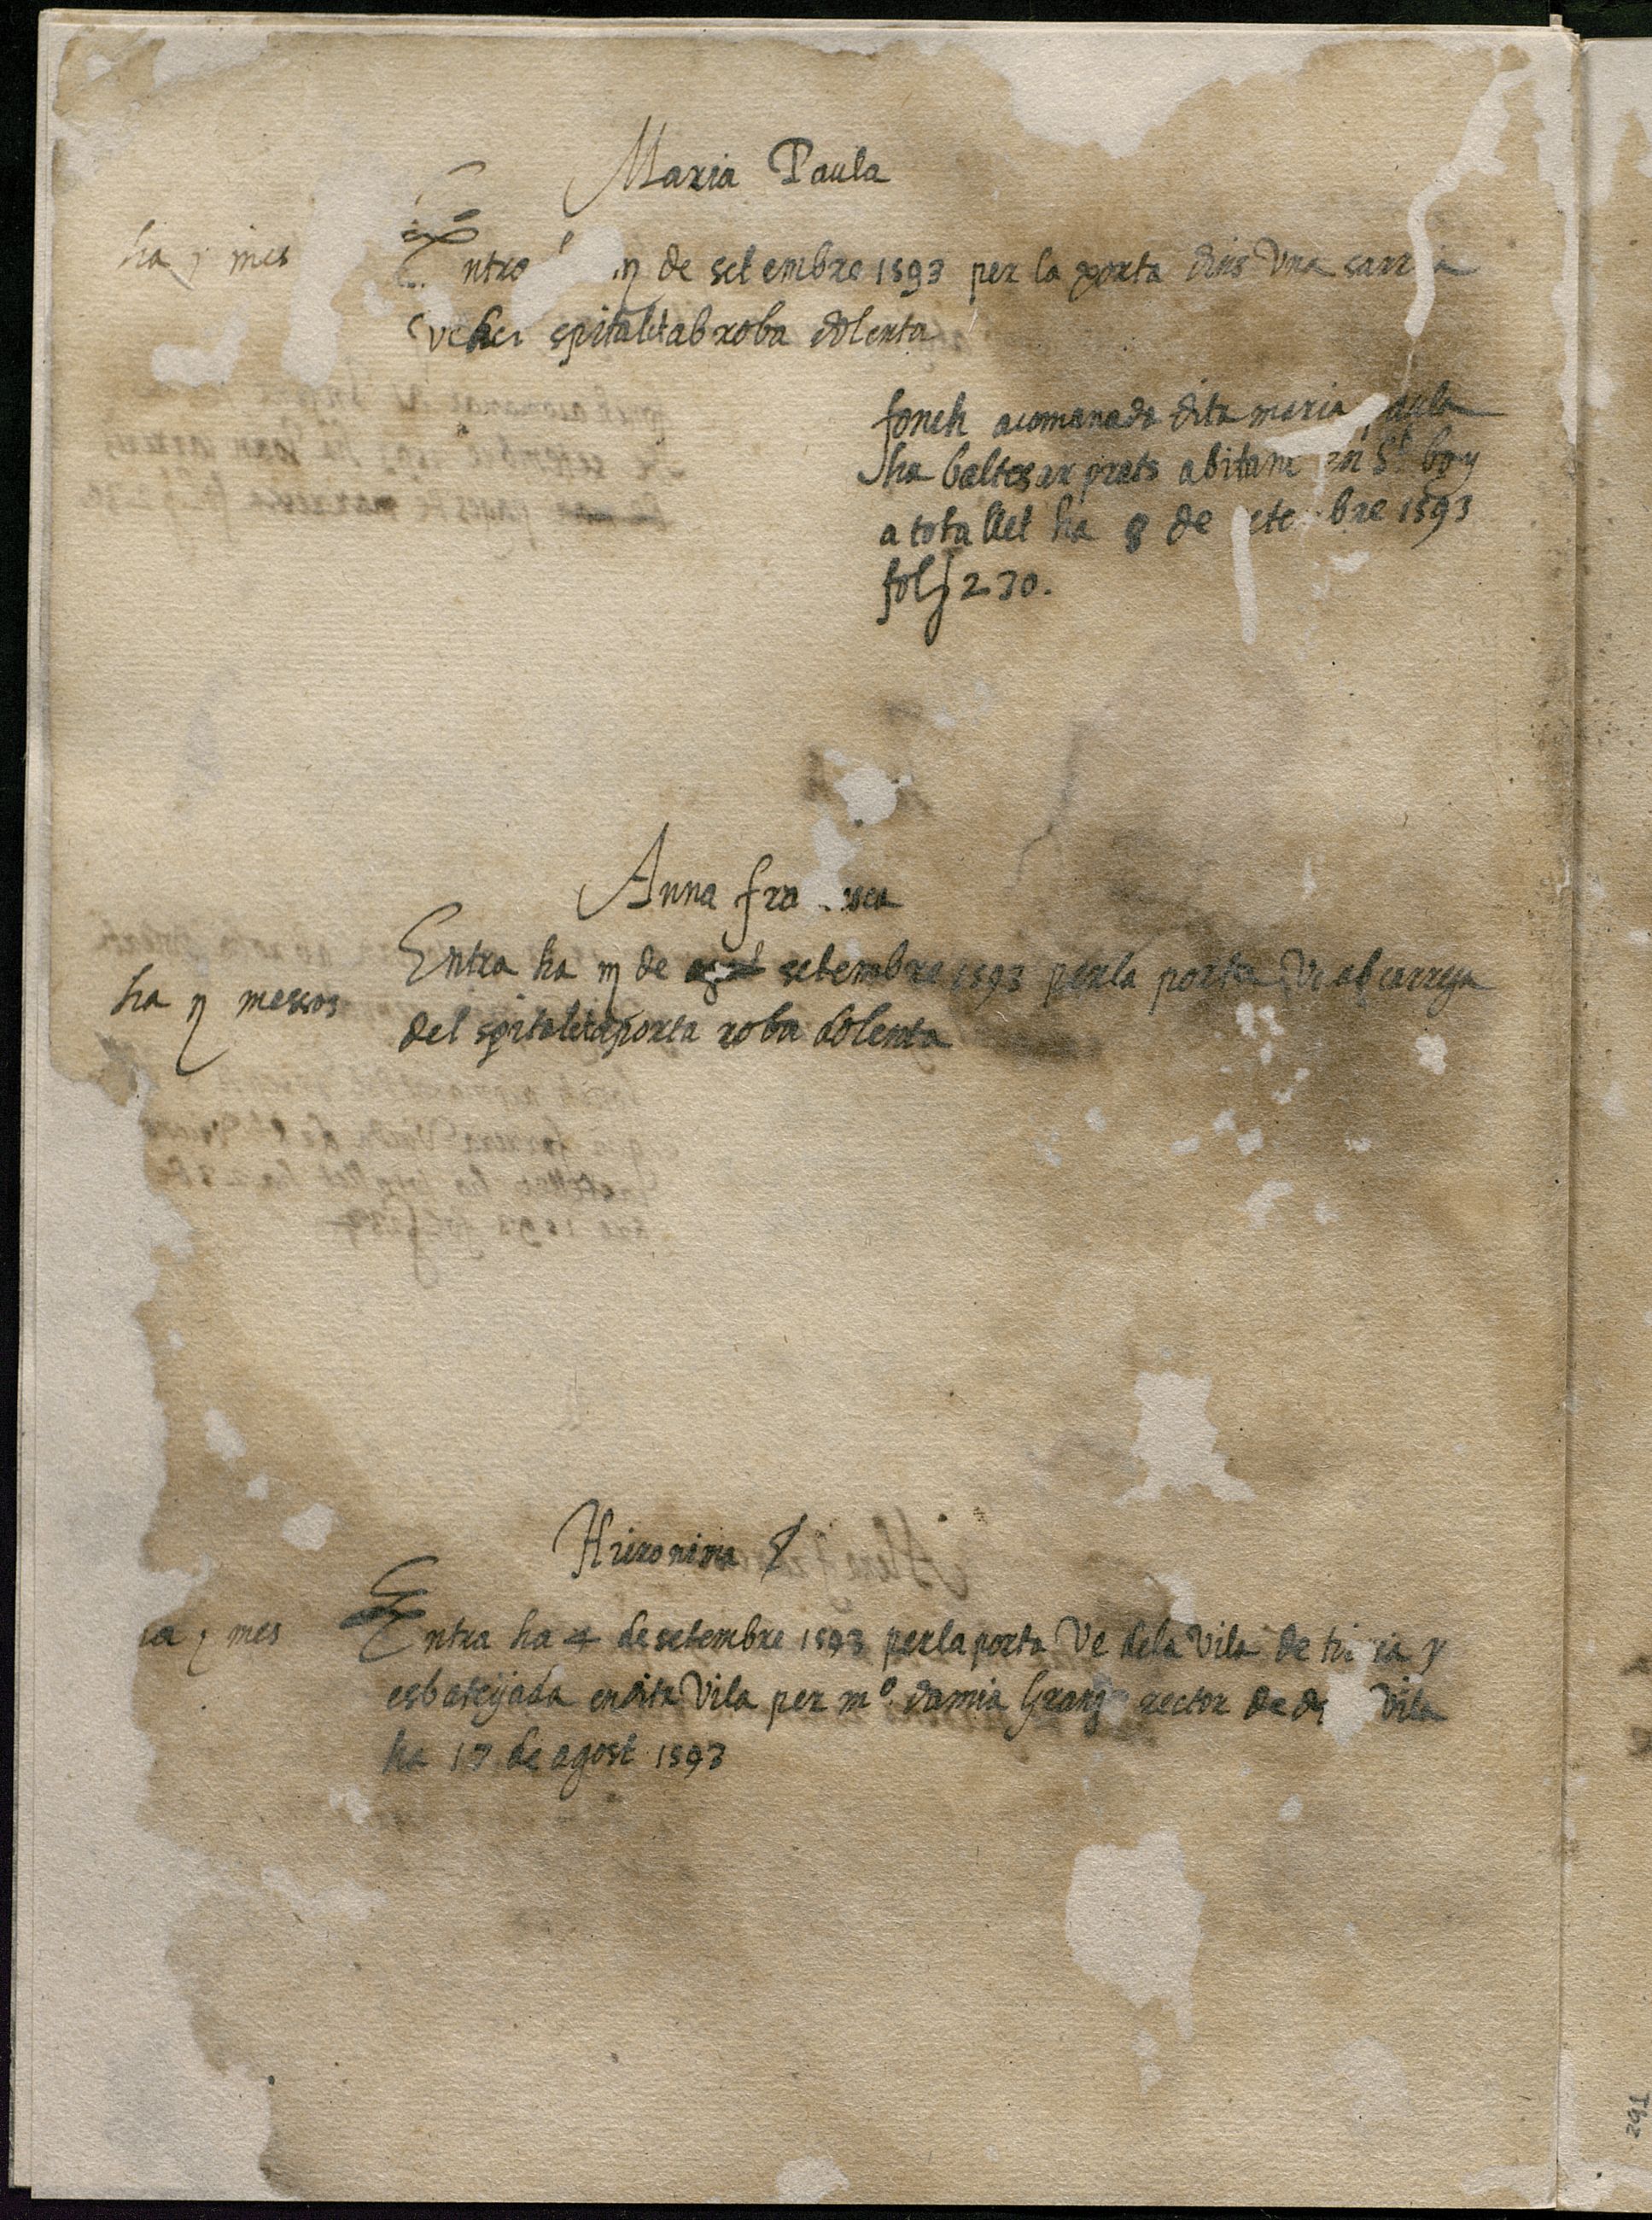 Maria Paula
ha j mes
Entra de setembre 1593 per la porta dins una sarria
spitalet ab roba dolenta
fonch acomanada dita maria paula
ha baltesar prats abitant en St boy
a tota llet ha 8 de setembre 1593
fol 230.
Anna fra
ha ij messos
Entra ha iij de setembre 1593 per la porta
del spitalet aporta roba dolenta
Hieronima
ha j mes
Entra ha 4 de setembre 1593 per la porta Ve de la Vila de
esbateijada en dita Vila per mº damia rector de Vila
ha 17 de agost 1593